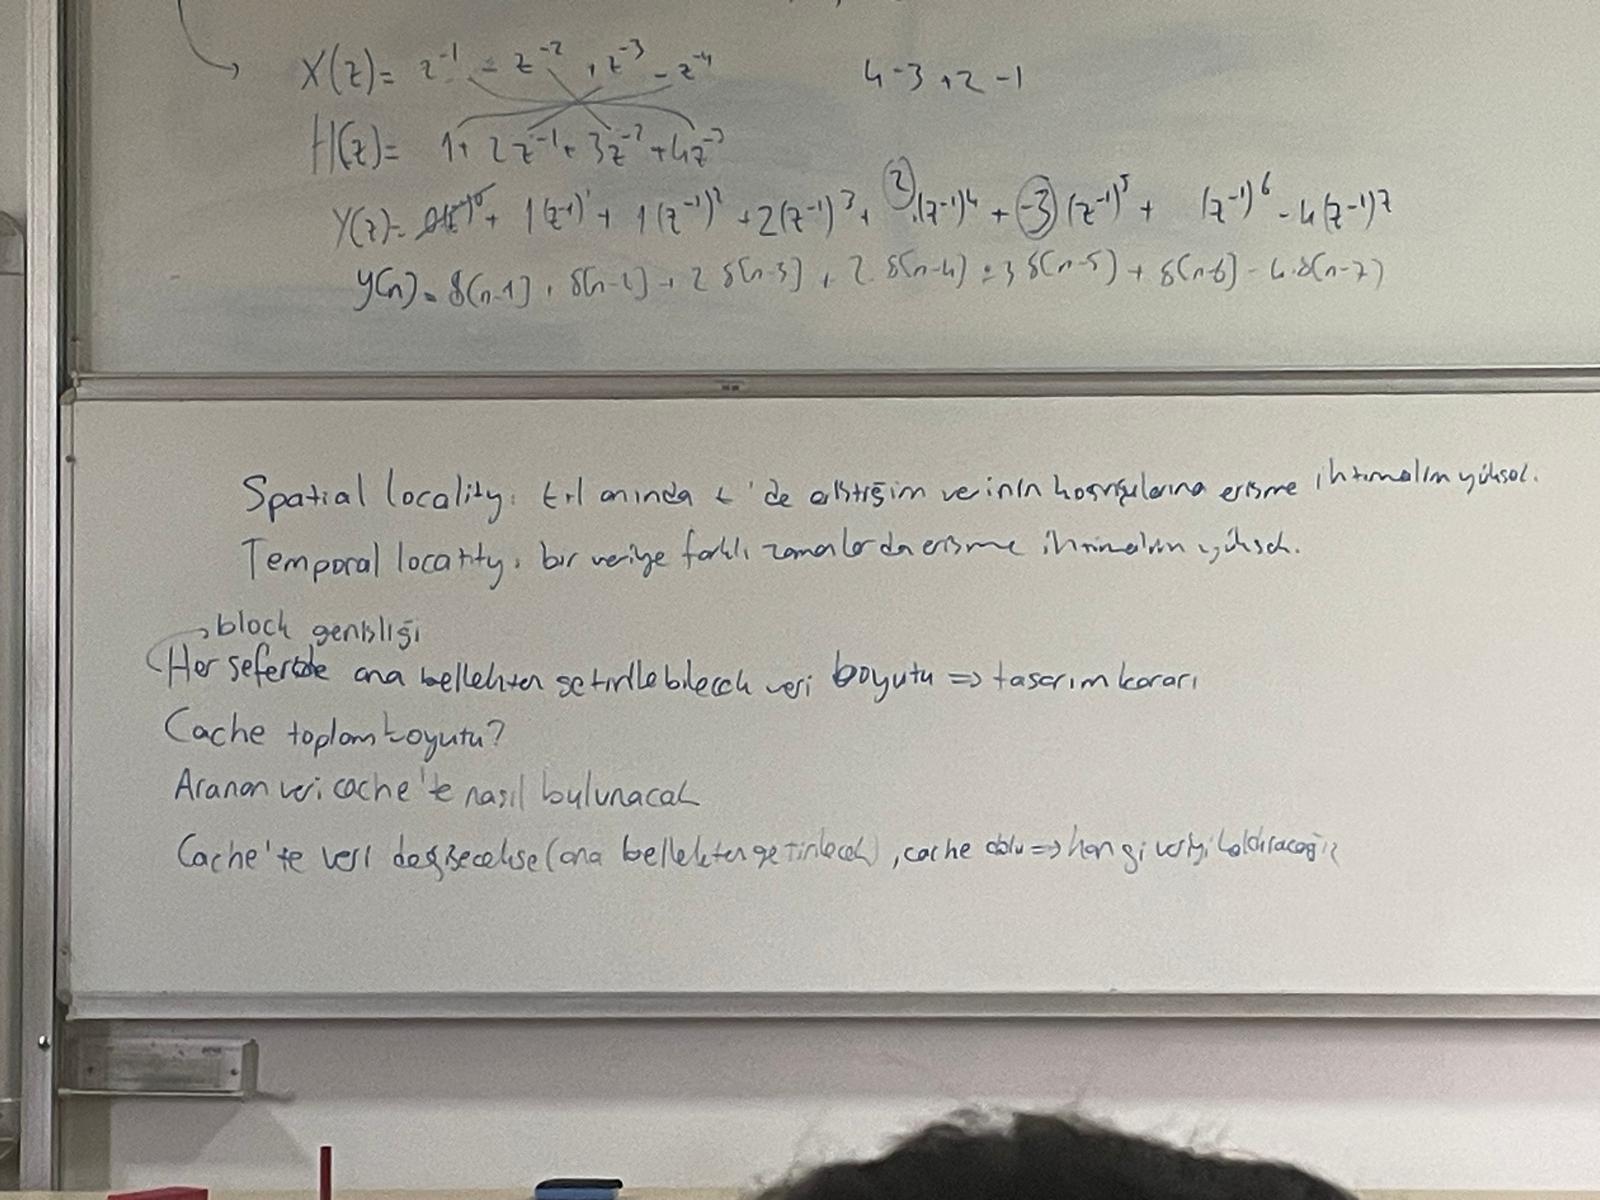 X(z)= z⁻¹ - z⁻² + z⁻³ - z⁻⁴
4-3+2-1
H(z)= 1+2z⁻¹+3z⁻²+4z⁻³
Y(z)= + 1(z⁻¹)¹ + 1(z⁻¹)² + 2(z⁻¹)³ + 2.(z⁻¹)⁴ + -3(z⁻¹)⁵ + (z⁻¹)⁶ - 4(z⁻¹)⁷
y(n)= δ(n-1) + δ(n-2) + 2 δ(n-3) + 2 δ(n-4) - 3 δ(n-5) + δ(n-6) - 4.δ(n-7)
Spatial locality: t+1 anında t'de eriştiğim verinin komşularına erişme ihtimalim yüksek.
Temporal locality: bir veriye farklı zamanlarda erişme ihtimalim yüksek.
block genişliği
Her seferinde ana bellekten getirilebilecek veri boyutu => tasarım kararı
Cache toplam boyutu?
Aranan veri cache'te nasıl bulunacak
Cache'te veri değişecekse (ana bellekten getirilecek), cache dolu => hangi veriyi